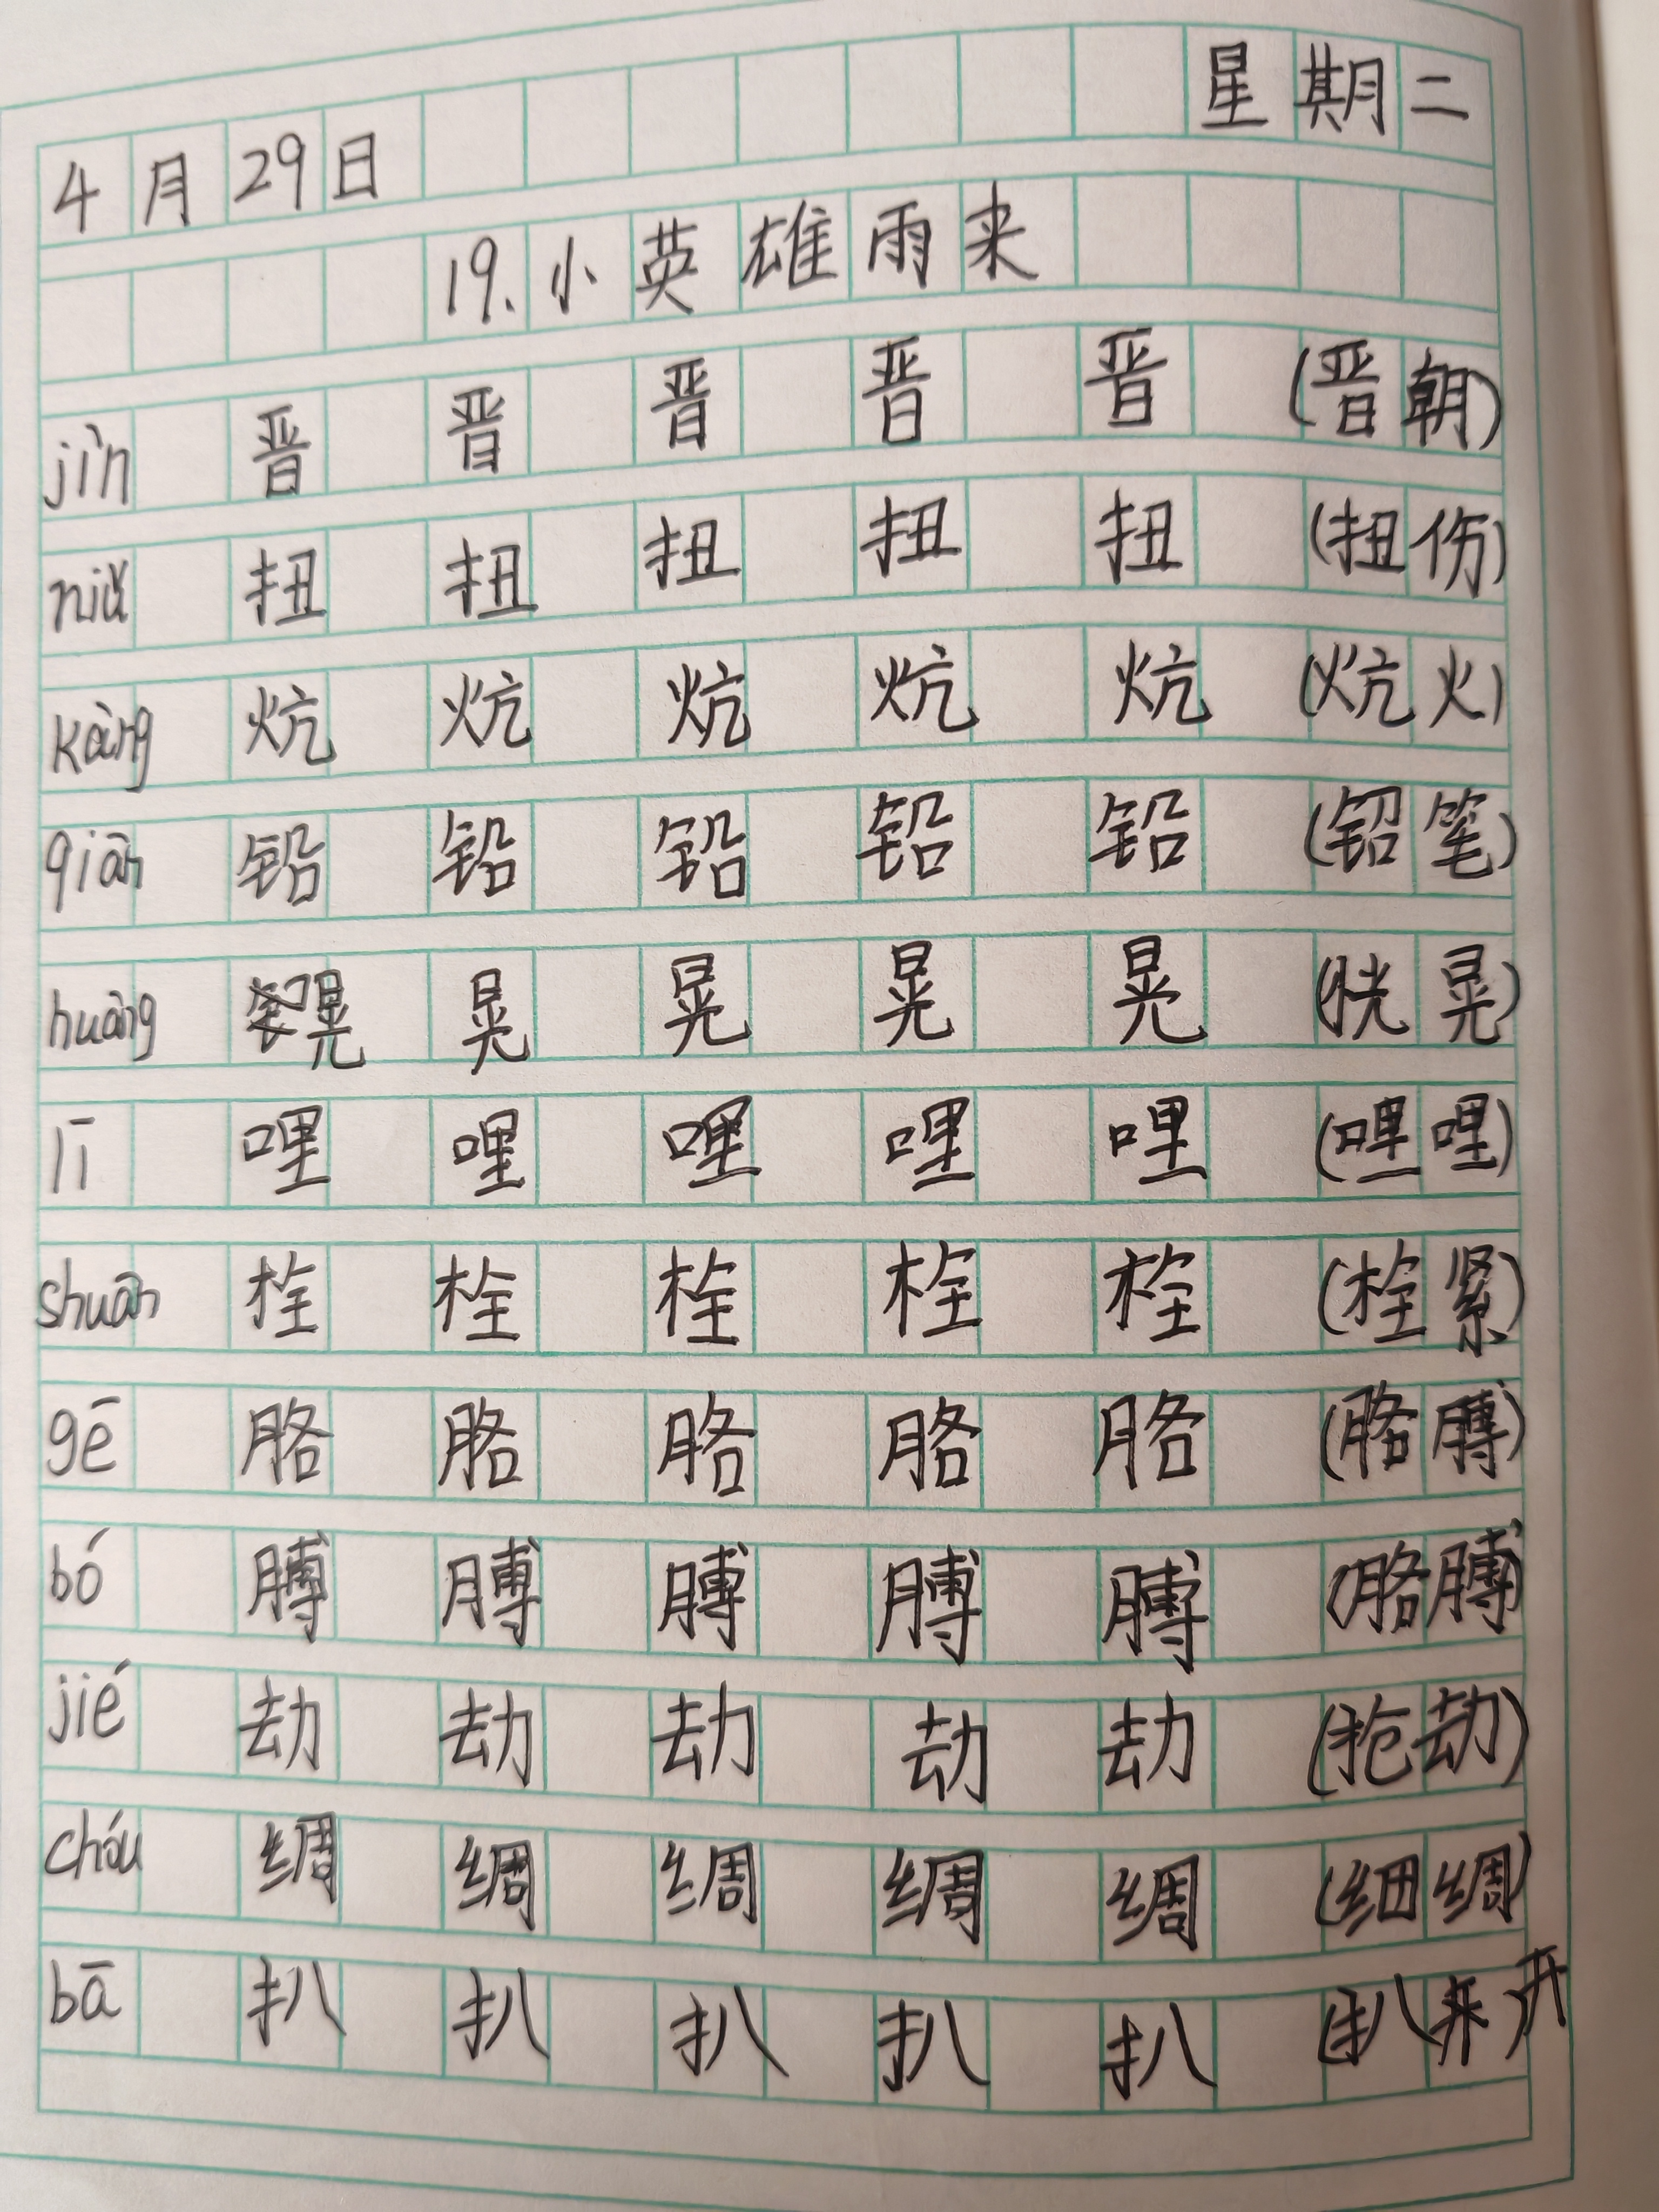 4月29日 星期二
19.小英雄雨来
jìn 晋 晋 晋 晋 晋 (晋朝)
niǔ 扭 扭 扭 扭 扭 (扭伤)
kàng 炕 炕 炕 炕 炕 (炕火)
qiān 铅 铅 铅 铅 铅 (铅笔)
huàng 晃 晃 晃 晃 晃 (恍晃)
lī 哩 哩 哩 哩 哩 (哩哩)
shuān 栓 栓 栓 栓 栓 (栓紧)
gē 胳 胳 胳 胳 胳 (胳膊)
bó 膊 膊 膊 膊 膊 (胳膊)
jié 劫 劫 劫 劫 劫 (抢劫)
chóu 绸 绸 绸 绸 绸 (细绸)
bā 扒 扒 扒 扒 扒 (扒开